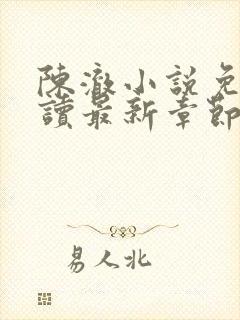 陳澈小說免
讀最新章節
易人北